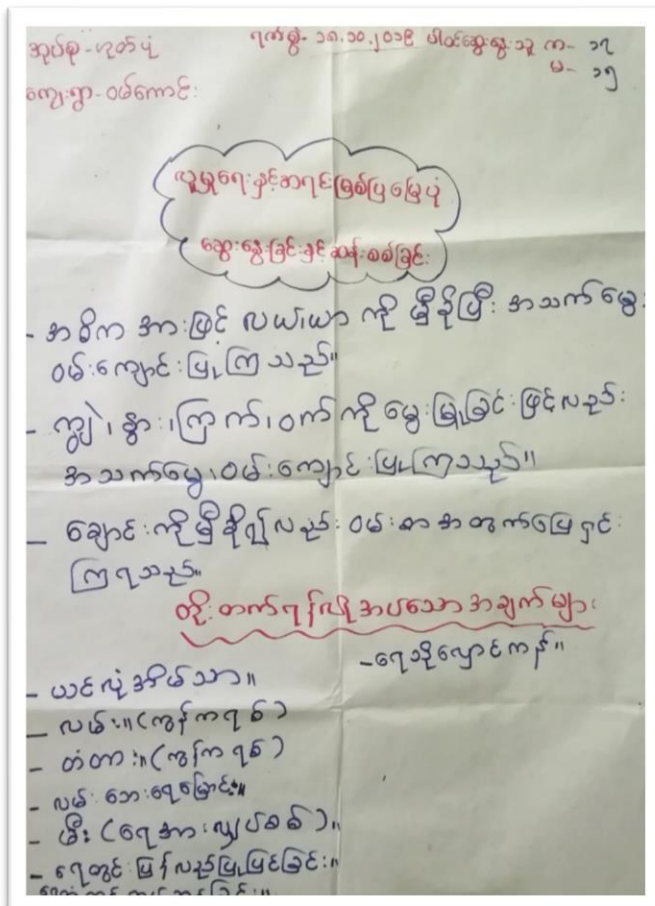 အုပ်စု-ဟုတ်ပုံ
ရက်စွဲ- ၁၈.၁၀.၂၀၁၉ ပါဝင်ဆွေးနွေးသူ က- ၁၇
မ- ၁၅
ကျေးရွာ-ဝမ်ကောင်း
လူမှုရေးနှင့်အရင်းမြစ်ပြမြေပုံ
ဆွေးနွေးခြင်းနှင့်ဆန်းစစ်ခြင်း
- အဓိက အားဖြင့် လယ်ယာ ကို မှီခိုပြီး အသက်မွေး
ဝမ်းကျောင်းပြုကြသည်။
- ကျွဲ၊နွား၊ကြက်၊ဝက်ကိုမွေးမြူခြင်းဖြင့်လည်း
အသက်မွေးဝမ်းကျောင်းပြုကြသည်။
- ချောင်းကိုမှီခို၍လည်းဝမ်းစာအတွက်ဖြေရှင်း
ကြရသည်။
တိုးတက်ရန်လိုအပ်သောအချက်များ
-ရေသိုလှောင်ကန်။
- ယင်လုံအိမ်သာ။
- လမ်း။(ကွန်ကရစ်)
- တံတား။(ကွန်ကရစ်)
- လမ်းဘေးရေမြောင်း။
- မီး(ရေအားလျှပ်စစ်)။
- ရေတွင်းပြန်လည်ပြုပြင်ခြင်း။